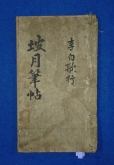 李白歌行
坡月筆帖